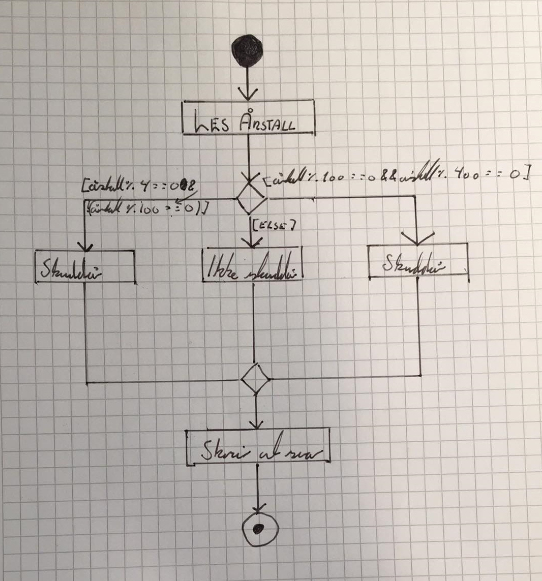 LES ÅRSTALL
[årstall % 4 == 0 &&
[årstall % 100 == 0)]
[årstall % 100 == 0 && årstall % 400 == 0]
[ELSE]
Skuddår
Ikke skuddår
Skuddår
Skriv ut svar